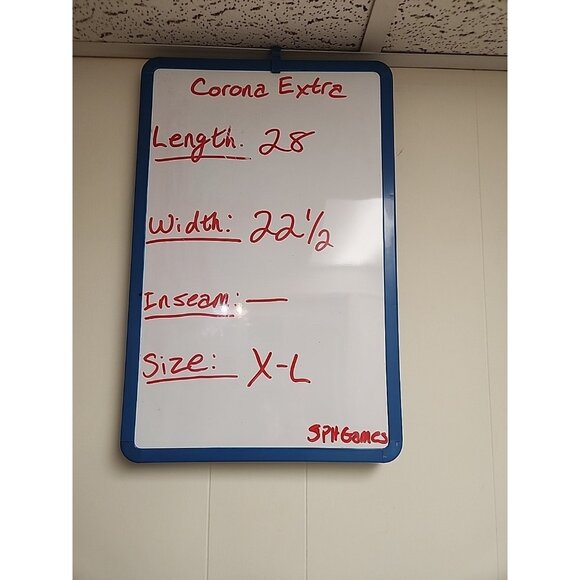 Corona Extra
Length. 28
Width: 22 1/2
Inseam: —
Size: X-L
SPHGames